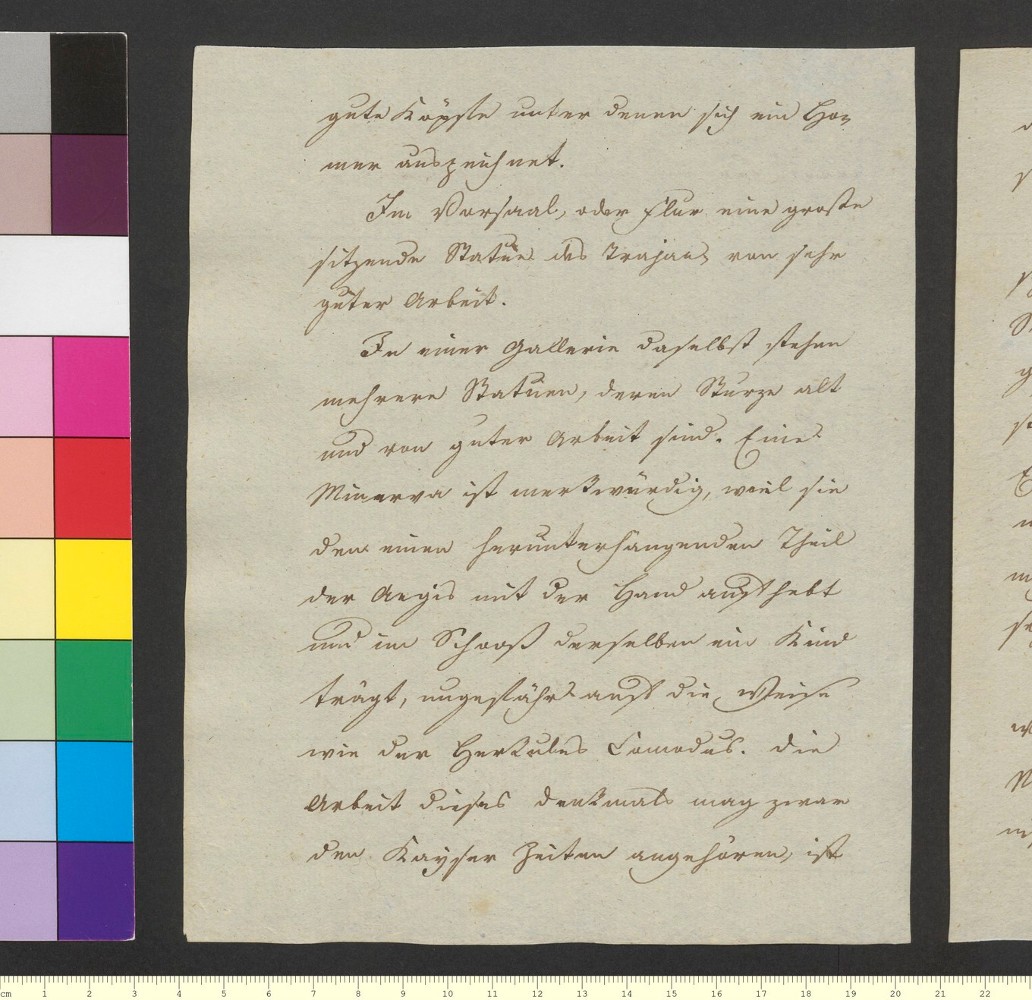 gute Köpfe unter denen sich ein Ho=
mer auszeichnet.
Im Vorsaal, oder Flur eine große
sitzende Statüe des Trajans von sehr
guter Arbeit.
In einer Gallerie daselbst stehen
mehrere Statüen, deren Sturze alt
und von guter Arbeit sind. Eine
Minerva ist merkwürdig, weil sie
den einen herunterhangenden Theil
der Aegis mit der Hand aufhebt
und im Schooß derselben ein Kind
trägt, ungefähr auf die Weise
wie der Herkules Comodus. Die
Arbeit dieses Denkmals mag zwar
den Kayser Zeiten angehören, ist
cm 1 2 3 4 5 6 7 8 9 10 11 12 13 14 15 16 17 18 19 20 21 22